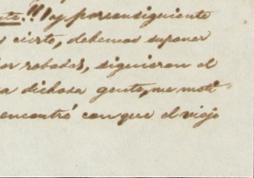 nte.!!! y por consiguiente
s cierto, debemos suponer
or robados, siguieron el
a dichosa gente, me moti-
encontró con que el viejo